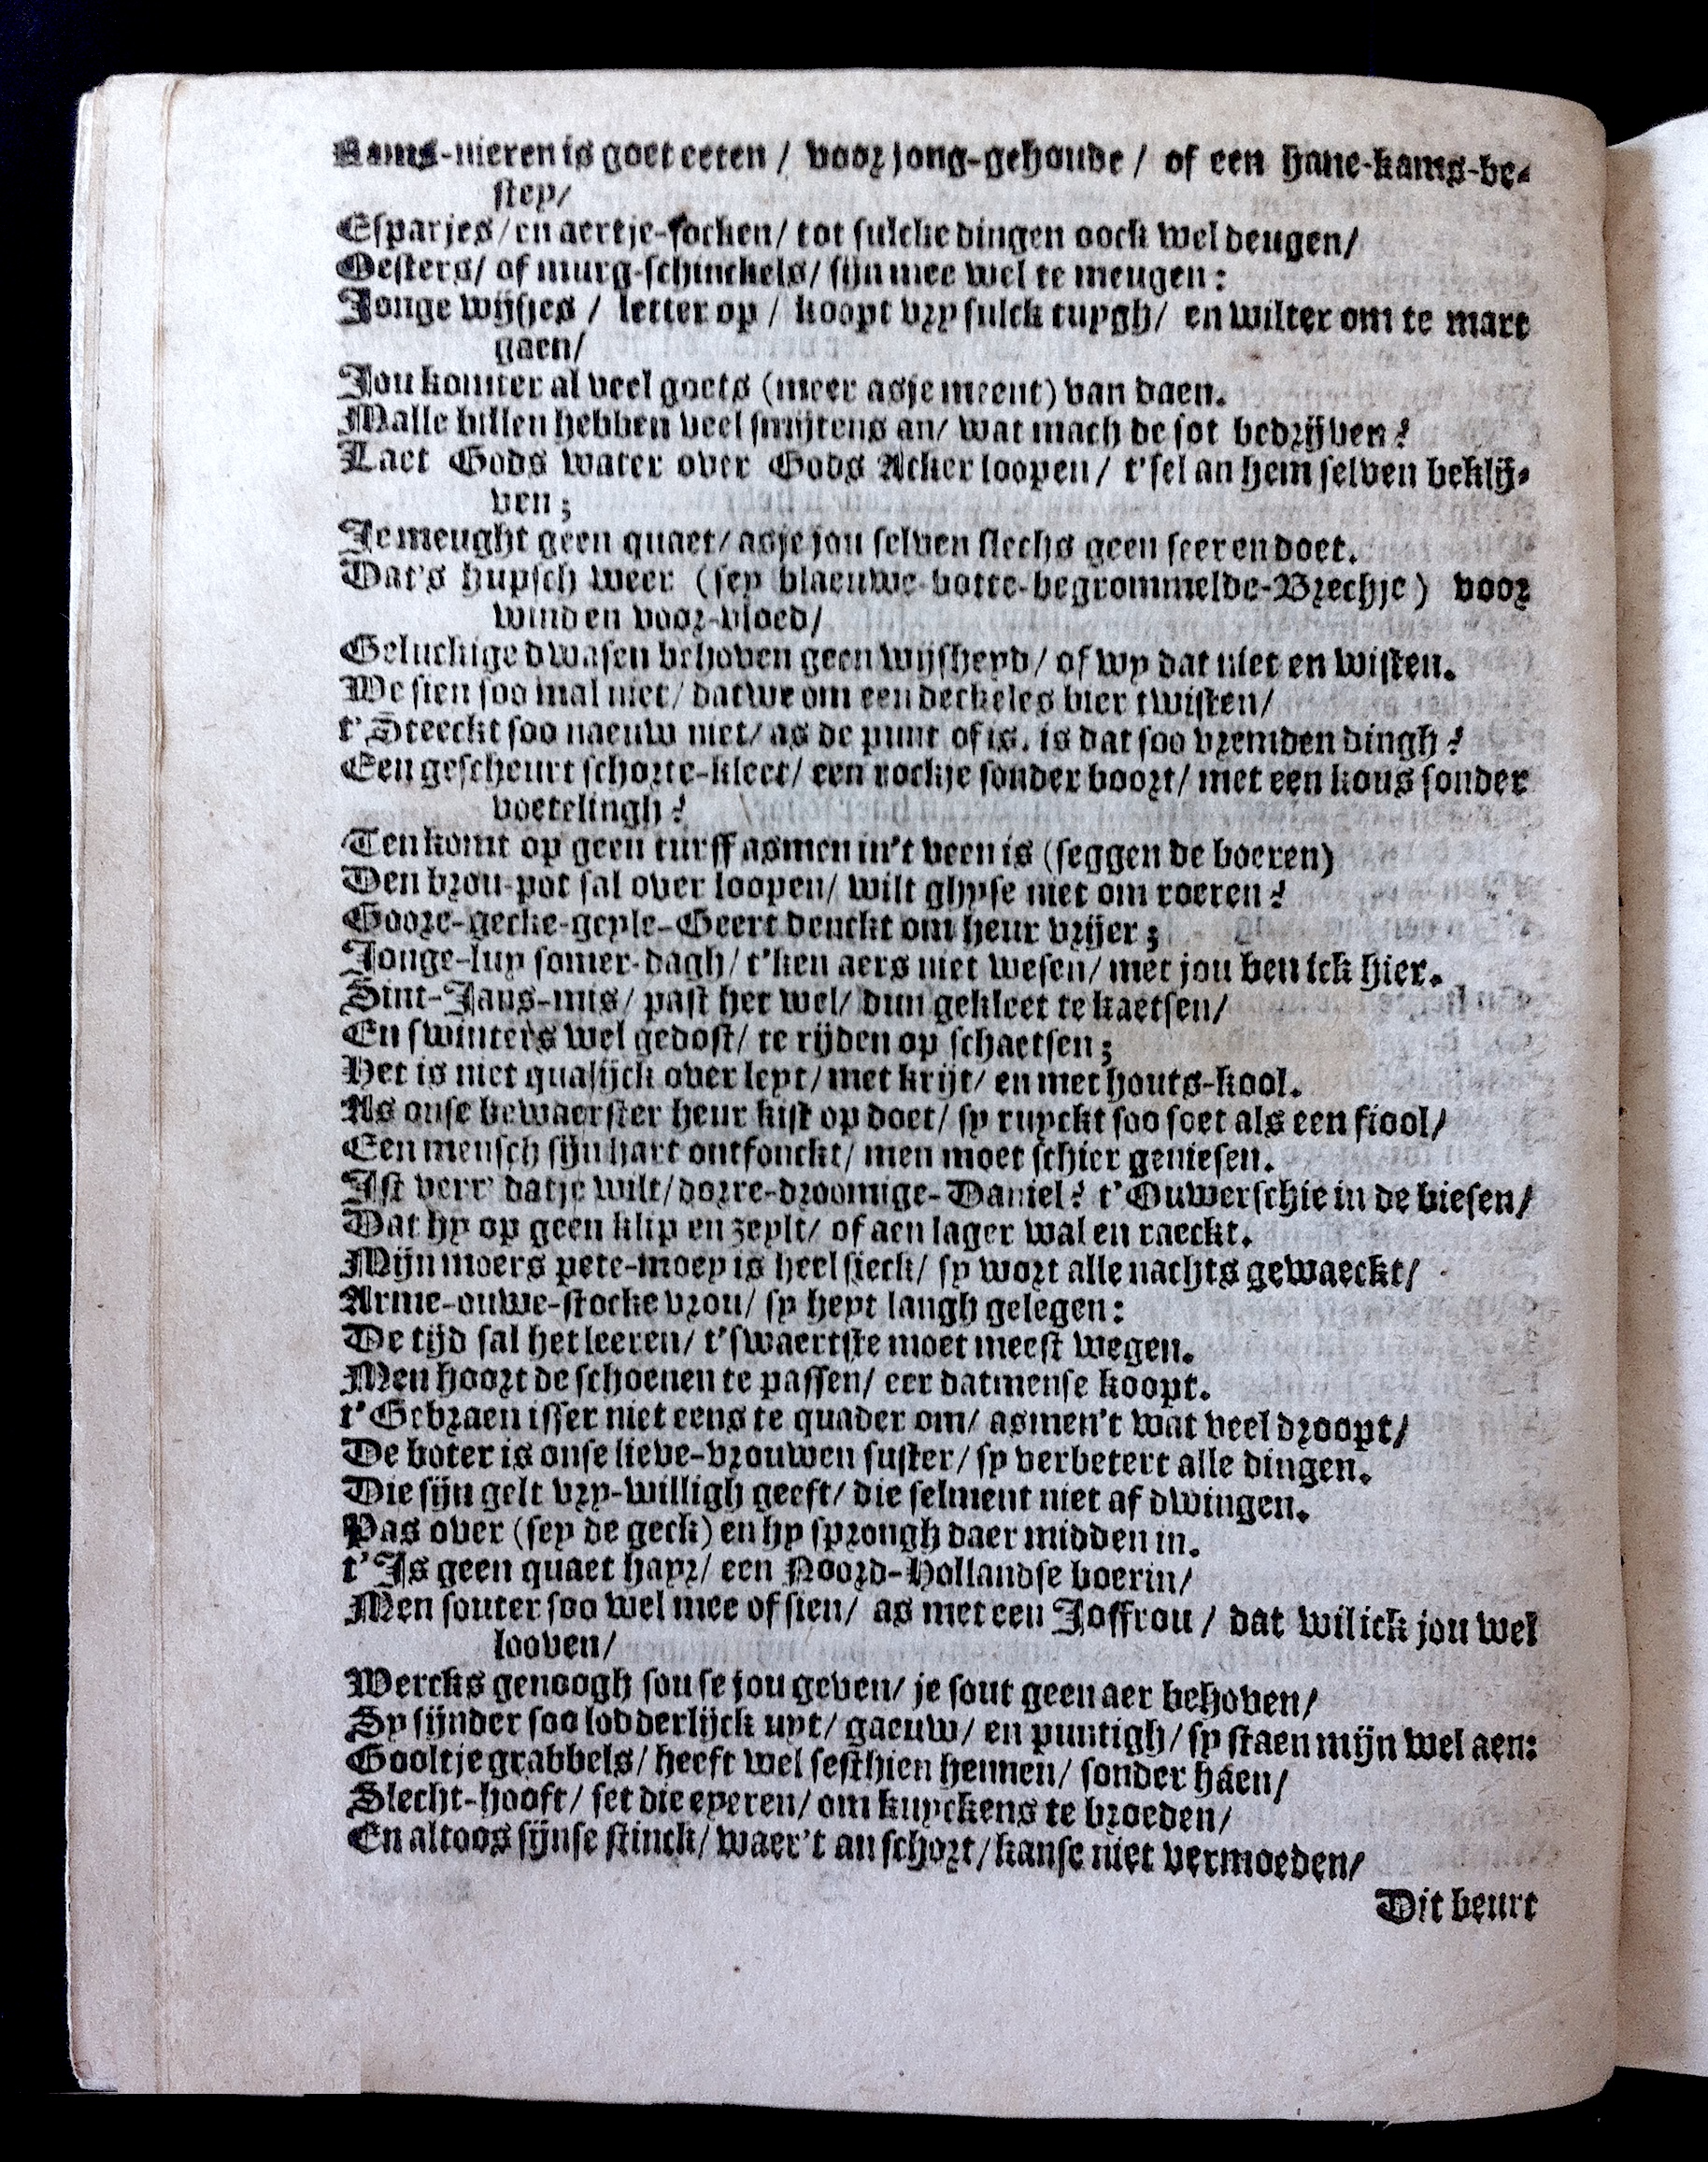 Rams-nieren is goet eeten / voor jong-gehoude / of een hane-kams-be-
stey/
Esparjes/en aertje-focken/ tot sulcke dingen oock wel deugen/
Oesters/ of murg-schinckels/ sijn mee wel te meugen:
Jonge wijfjes / letter op / koopt vry sulck tuygh/ en wilter om te mart
gaen/
Jou komter al veel goets (meer asje meent) van daen.
Malle billen hebben veel smijtens an/ wat mach de sot bedrijven?
Laet Gods water over Gods Acker loopen/ t'sel an hem selven beklij-
ven;
Je meught geen quaet/ asje jou selven slechs geen seer en doet.
Dat's hupsch weer (sey blaeuwe-botte-begrommelde-Brechje) voor
wind en voor-vloed/
Geluckige dwasen behoven geen wijsheyd/ of wy dat niet en wisten.
We sien soo mal niet/ datwe om een deckeles bier twisten/
t'Steeckt soo naeuw niet/ as de punt of is. is dat soo vremden dingh?
Een gescheurt schorte-kleet/ een rockje sonder boort/ met een kous sonder
voetelingh?
Ten komt op geen turff asmen in't veen is (seggen de boeren)
Den brou-pot sal over loopen/ wilt ghyse niet om roeren?
Goore-gecke-geyle-Geert denckt om heur vrijer;
Jonge-luy somer-dagh/ t'ken aers niet wesen/ met jou ben ick hier.
Sint-Jans-mis/ past het wel/ dun gekleet te kaetsen/
En swinters wel gedost/ te rijden op schaetsen;
Het is niet qualijck over leyt/ met krijt/ en met houts-kool.
As onse bewaerster heur kist op doet/ sy ruyckt soo soet als een fiool/
Een mensch sijn hart ontfonckt/ men moet schier geniesen.
Ist verr' datje wilt/dorre-droomige-Daniel? t'Ouwerschie in de biesen/
Dat hy op geen klip en zeylt/ of aen lager wal en raeckt.
Mijn moers pete-moey is heel sieck/ sy wort alle nachts gewaeckt/
Arme-ouwe-stocke vrou/ sy heyt langh gelegen:
De tijd sal het leeren/ t'swaertste moet meest wegen.
Men hoort de schoenen te passen/ eer datmense koopt.
t'Gebraen isser niet eens te quader om/ asmen't wat veel droopt/
De boter is onse lieve-vrouwen suster/ sy verbetert alle dingen.
Die sijn gelt vry-willigh geeft/ die selment niet af dwingen.
Pas over (sey de geck) en hy sprongh daer midden in.
t'Is geen quaet hayr/ een Noord-Hollandse boerin/
Men souter soo wel mee of sien/ as met een Joffrou / dat wil ick jou wel
looven/
Wercks genoogh sou se jou geven/ je sout geen aer behoven/
Sy sijnder soo lodderlijck uyt/ gaeuw/ en puntigh/ sy staen mijn wel aen:
Gooltje grabbels/ heeft wel sesthien hennen/ sonder haen/
Slecht-hooft/ set die eyeren/ om kuyckens te broeden/
En altoos sijnse stinck/ waer't an schort/ kanse niet vermoeden/
Dit beurt